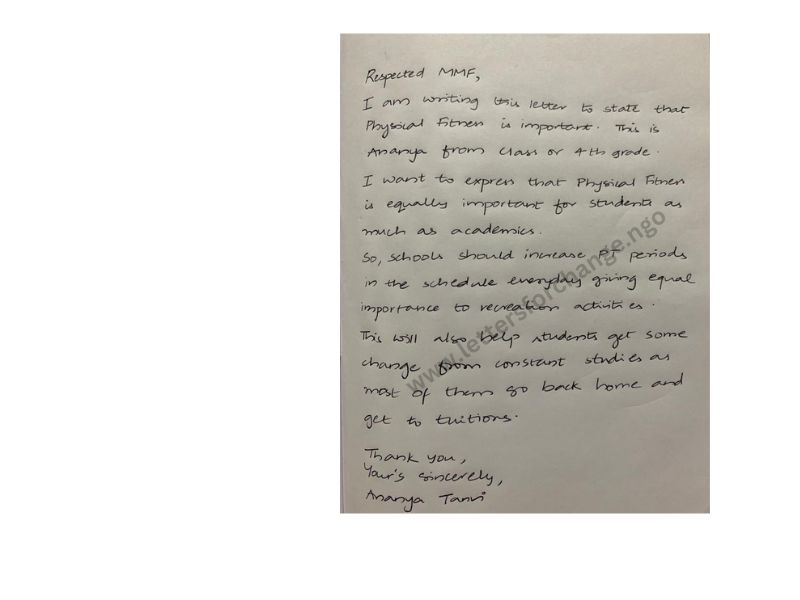 Respected MMF,
I am writing this letter to state that
Physical Fitness is important. This is
Ananya from class or 4th grade.
I want to express that Physical Fitness
is equally important for students as
much as academics.
So, schools should increase PT periods
in the schedule everyday giving equal
importance to recreation activities.
This will also help students get some
change from constant studies as
most of them go back home and
get to tuitions.
Thank you,
Your's sincerely,
Ananya Tanvi
www.lettersforchange.ngo